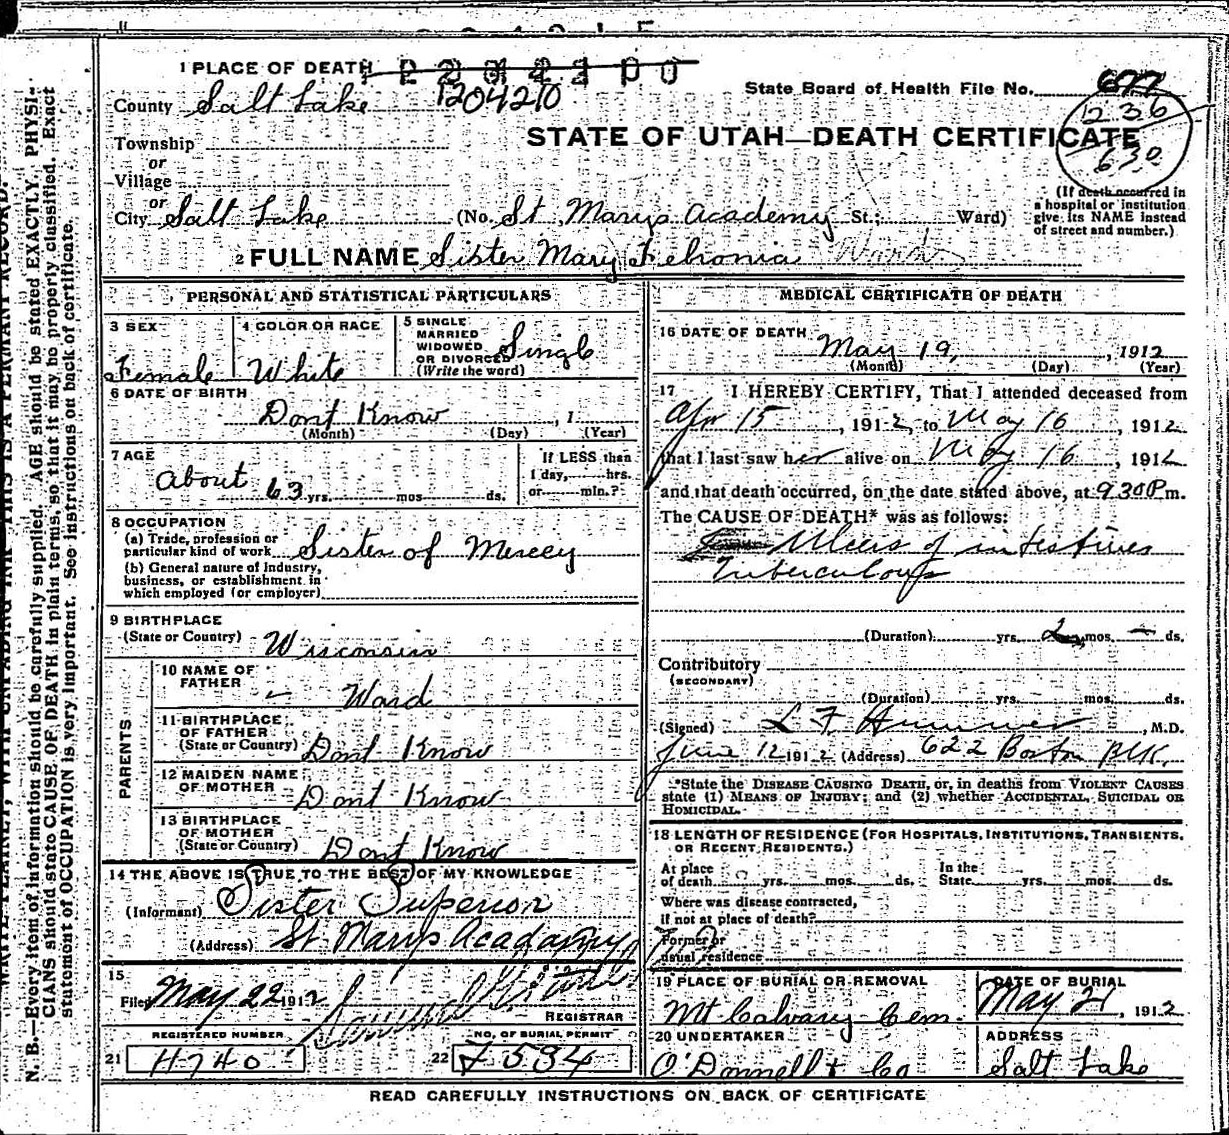 1 PLACE OF DEATH
1204210
County Salt Lake
State Board of Health File No. 677
236
630
STATE OF UTAH—DEATH CERTIFICATE
Township
or
Village
or
City Salt Lake (No. St Marys Academy St.; Ward)
(If death occurred in
a hospital or institution
give its NAME instead
of street and number.)
2 FULL NAME Sister Mary Fehronia Ward
PERSONAL AND STATISTICAL PARTICULARS
3 SEX
Female
4 COLOR OR RACE
White
5 SINGLE
MARRIED
WIDOWED
OR DIVORCED
(Write the word)
Single
6 DATE OF BIRTH
Dont Know , 1
(Month) (Day) (Year)
7 AGE
About 63 yrs. mos. ds.
If LESS than
1 day, hrs.
or min.?
8 OCCUPATION
(a) Trade, profession or
particular kind of work Sister of Mercey
(b) General nature of Industry,
business, or establishment in
which employed (or employer)
9 BIRTHPLACE
(State or Country) Wisconsin
PARENTS
10 NAME OF
FATHER
— Ward
11 BIRTHPLACE
OF FATHER
(State or Country) Dont Know
12 MAIDEN NAME
OF MOTHER
Dont Know
13 BIRTHPLACE
OF MOTHER
(State or Country) Dont Know
14 THE ABOVE IS TRUE TO THE BEST OF MY KNOWLEDGE
(Informant) Sister Superior
(Address) St Marys Acadamy
15
Filed May 22 1912
REGISTRAR
REGISTERED NUMBER
21 H740
NO. OF BURIAL PERMIT
22 7584
MEDICAL CERTIFICATE OF DEATH
16 DATE OF DEATH
May 19, , 1912
(Month) (Day) (Year)
17 I HEREBY CERTIFY, That I attended deceased from
Apr 15 , 1912, to May 16 , 1912
that I last saw her alive on May 16 , 1912
and that death occurred, on the date stated above, at 930P m.
The CAUSE OF DEATH* was as follows:
Ulcers of intestines
Tuberculous
(Duration) yrs. 2 mos. — ds.
Contributory
(SECONDARY)
(Duration) yrs. mos. ds.
(Signed) L F Hummer , M.D.
June 12 1912 (Address) 622 Boston Blk.
*State the DISEASE CAUSING DEATH, or, in deaths from VIOLENT CAUSES
state (1) MEANS OF INJURY; and (2) whether ACCIDENTAL, SUICIDAL OR
HOMICIDAL.
18 LENGTH OF RESIDENCE (FOR HOSPITALS, INSTITUTIONS, TRANSIENTS,
OR RECENT RESIDENTS.)
At place
of death yrs. mos. ds.
In the
State yrs. mos. ds.
Where was disease contracted,
if not at place of death?
Former or
usual residence
19 PLACE OF BURIAL OR REMOVAL
Mt Calvary Cem.
DATE OF BURIAL
May 21 , 1912
20 UNDERTAKER
O'Donnell & Co
ADDRESS
Salt Lake
READ CAREFULLY INSTRUCTIONS ON BACK OF CERTIFICATE
WRITE PLAINLY, WITH UNFADING INK—THIS IS A PERMANENT RECORD.
N. B.—Every item of information should be carefully supplied. AGE should be stated EXACTLY. PHYSI-
CIANS should state CAUSE OF DEATH in plain terms, so that it may be properly classified. Exact
statement of OCCUPATION is very important. See instructions on back of certificate.